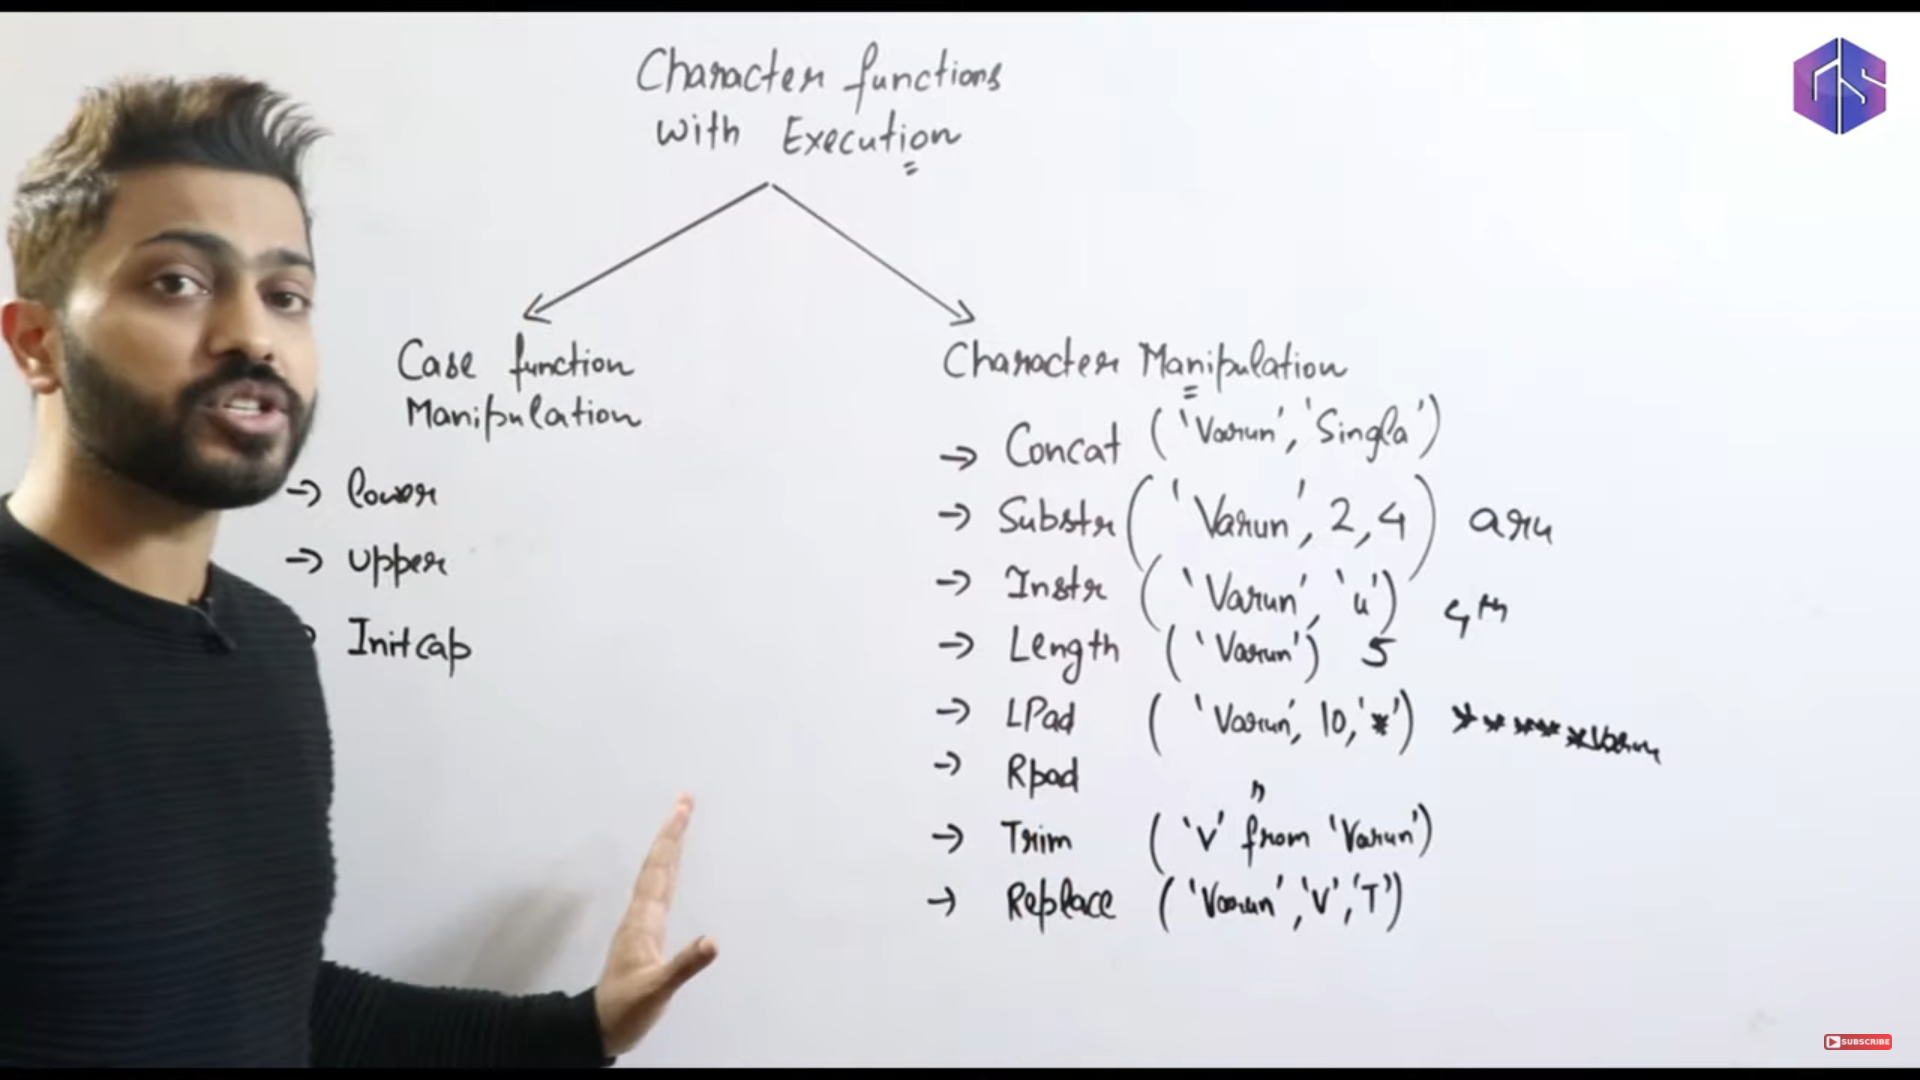 Character functions
with Execution
Case function
Manipulation
→ lower
→ upper
Initcap
Character Manipulation
→ Concat ('Varun', 'Singla')
→ Substr ('Varun', 2, 4) aru
→ Instr ('Varun', 'u') 4th
→ Length ('Varun') 5
→ LPad ('Varun', 10, '*') *****Varun
→ Rpad "
→ Trim ('V' from 'Varun')
→ Replace ('Varun', 'V', 'T')
GS
SUBSCRIBE